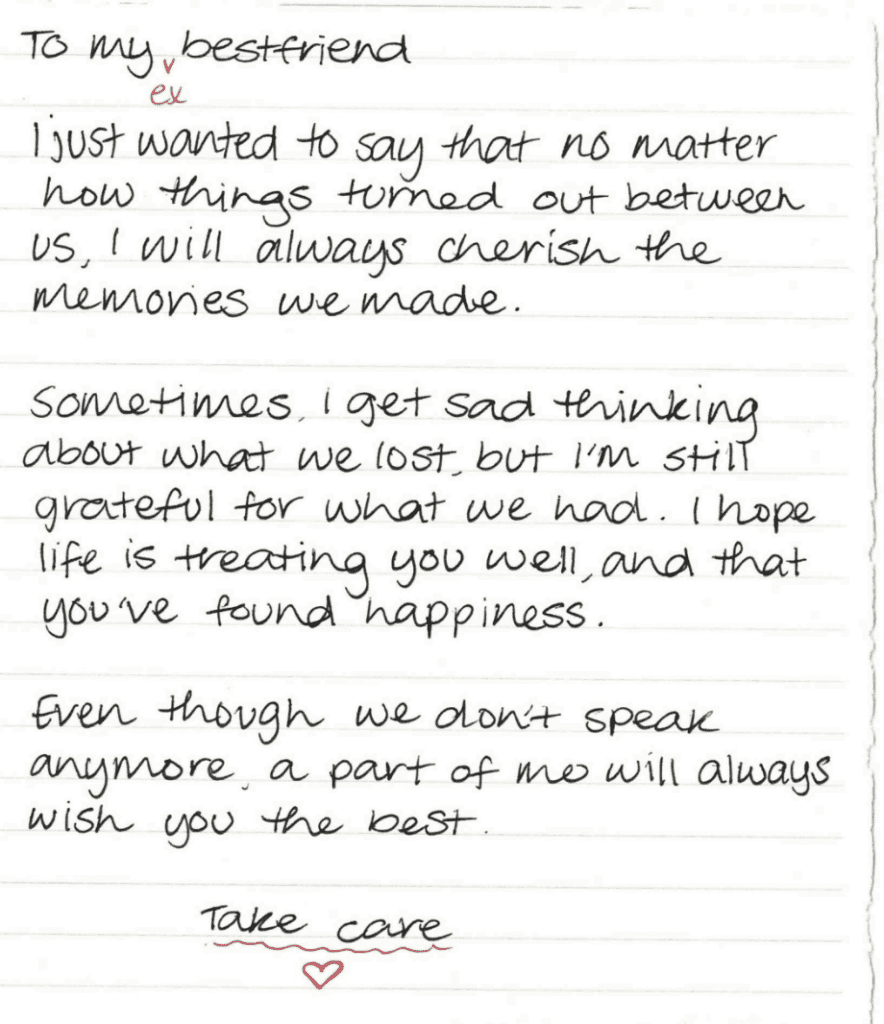 To my bestfriend
ex
I just wanted to say that no matter
how things turned out between
us, I will always cherish the
memories we made.
Sometimes, I get sad thinking
about what we lost, but I'm still
grateful for what we had. I hope
life is treating you well, and that
you've found happiness.
Even though we don't speak
anymore, a part of me will always
wish you the best.
Take care